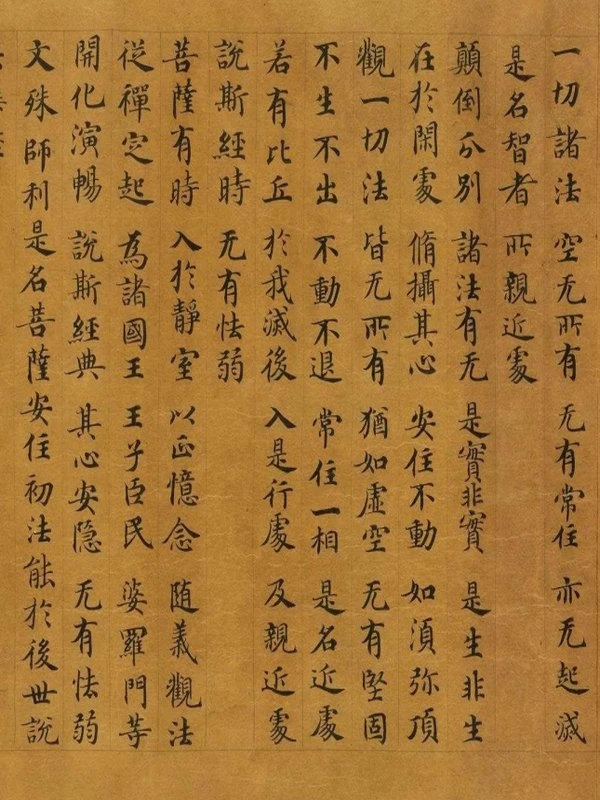 一切諸法 空无所有 无有常住 亦无起滅
是名智者 所親近處
顛倒分別 諸法有无 是實非實 是生非生
在於閑處 脩攝其心 安住不動 如須弥頂
觀一切法 皆无所有 猶如虛空 无有堅固
不生不出 不動不退 常住一相 是名近處
若有比丘 於我滅後 入是行處 及親近處
說斯經時 无有怯弱
菩薩有時 入於靜室 以正憶念 随義觀法
從禪定起 為諸國王 王子臣民 婆羅門等
開化演暢 說斯經典 其心安隐 无有怯弱
文殊師利是名菩薩安住初法能於後世說